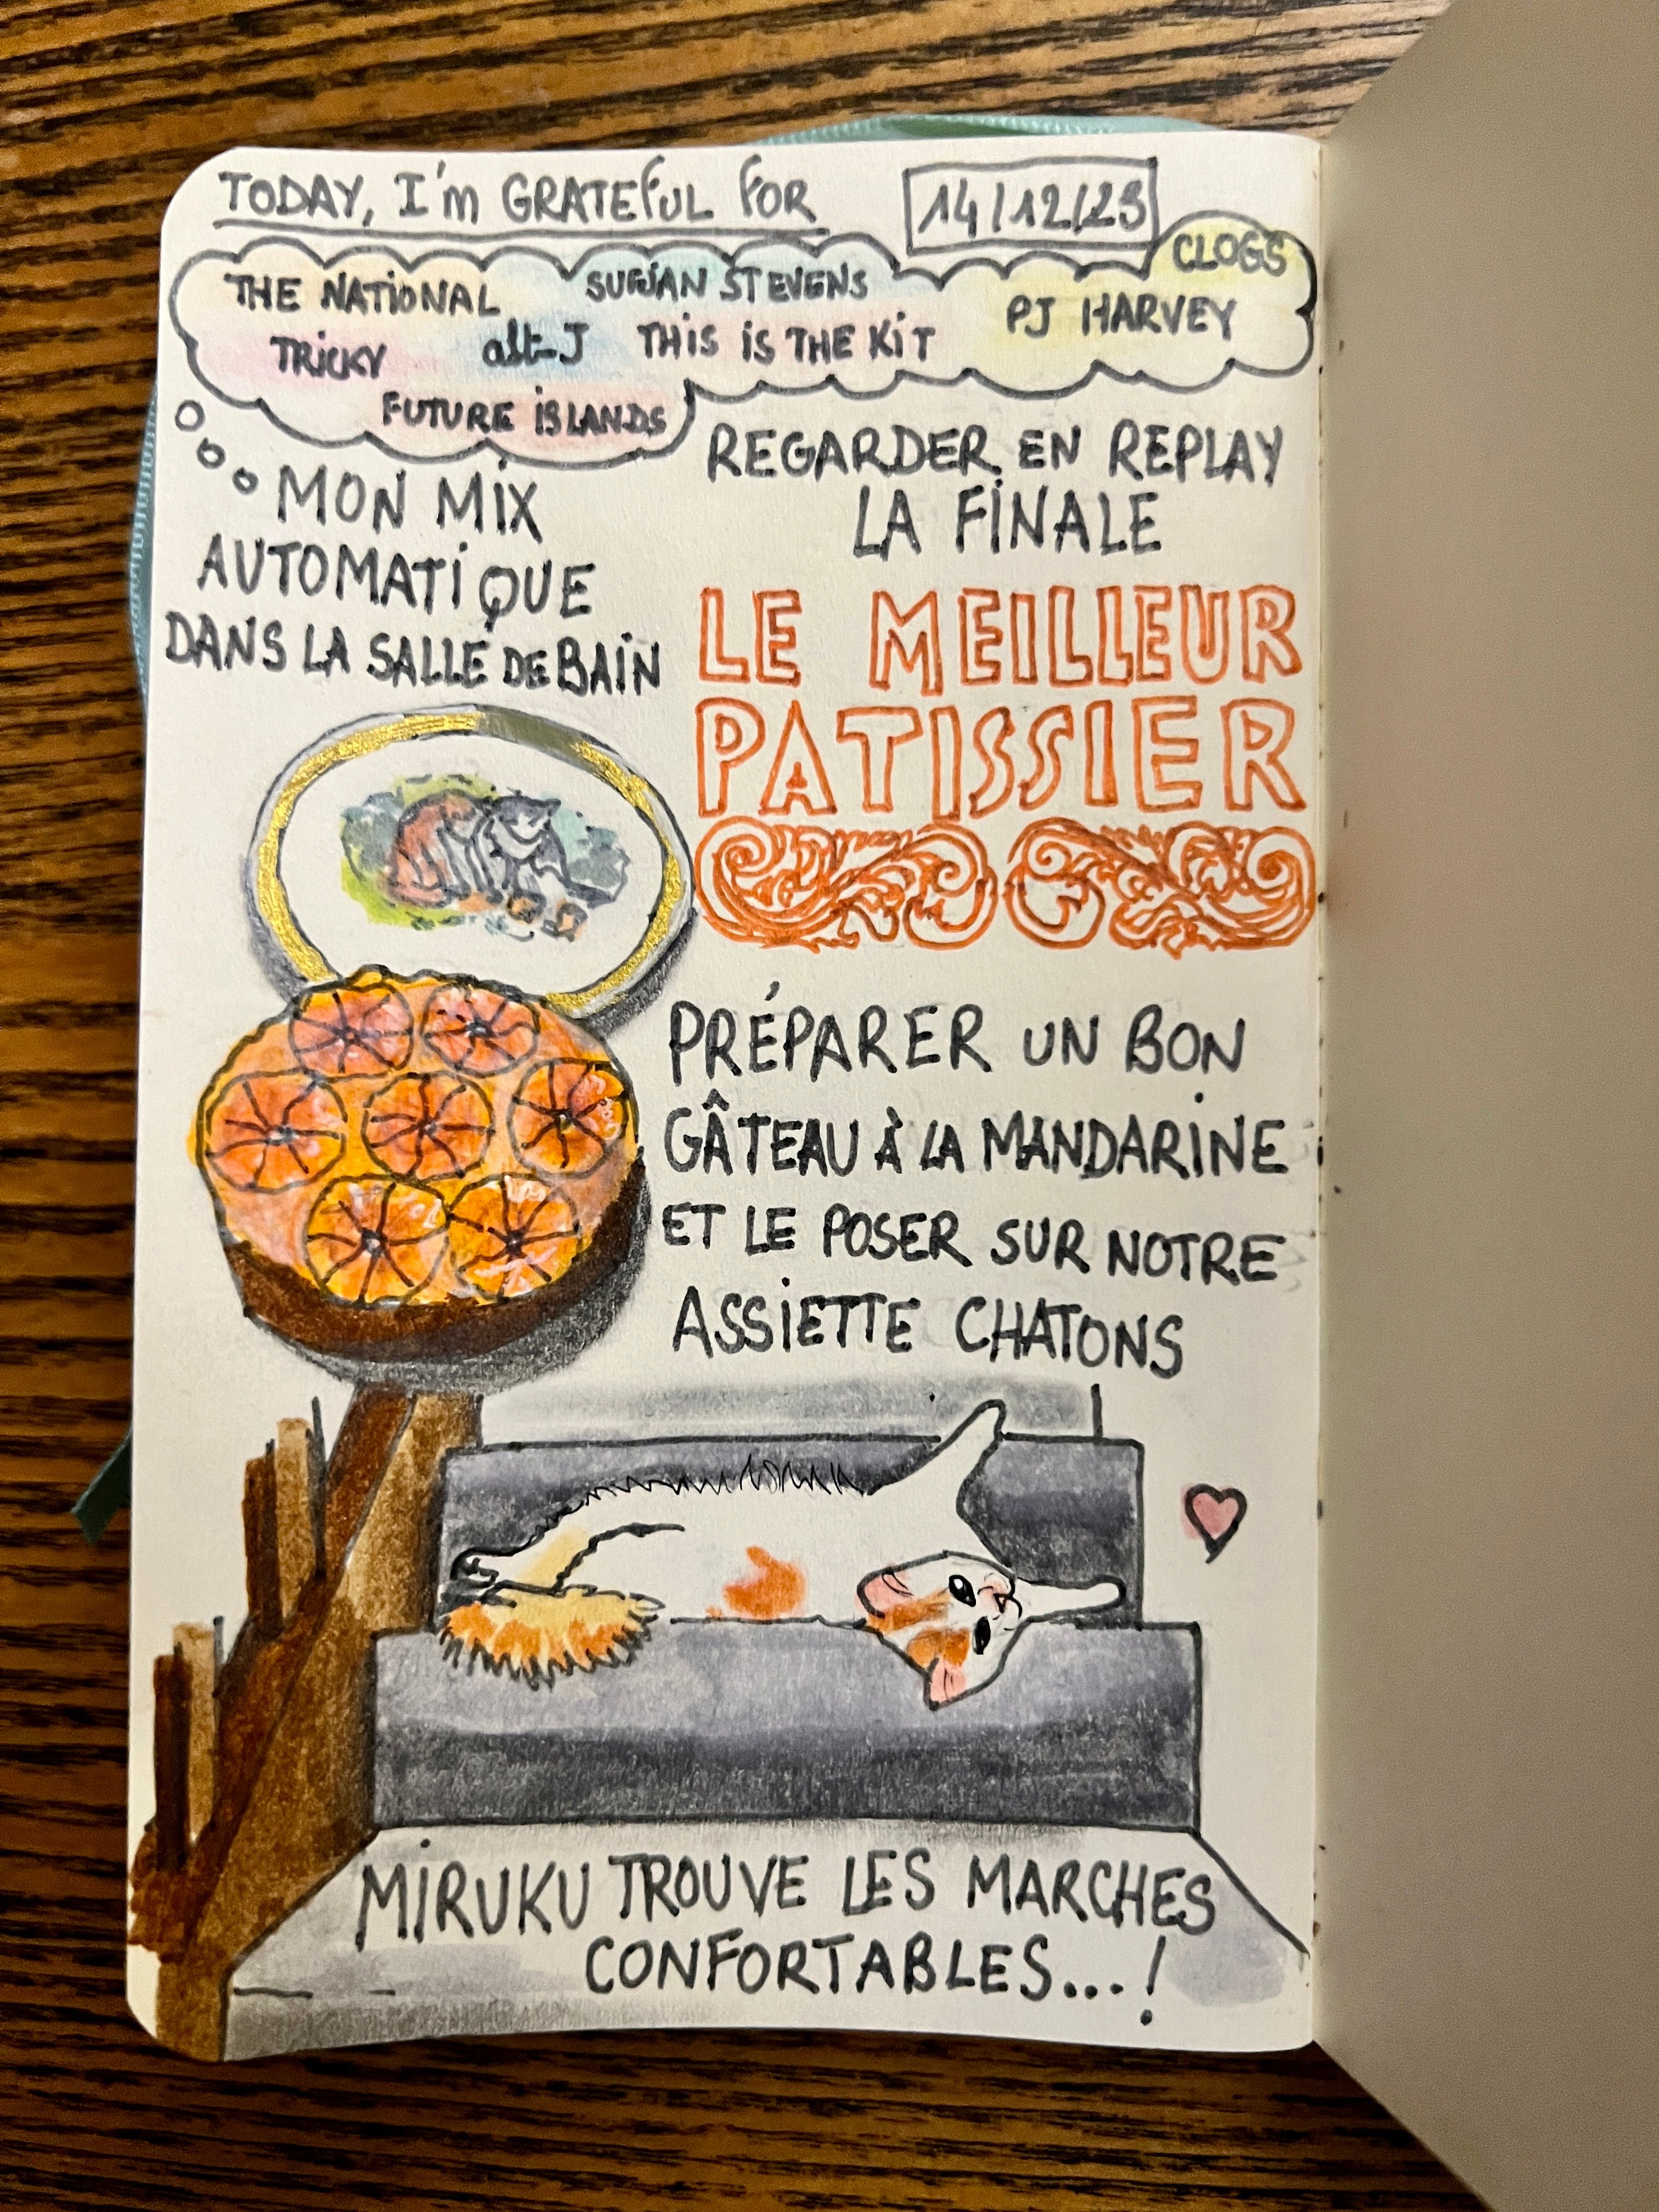 TODAY, I'm GRATEFUL FOR
14/12/23
CLOGS
THE NATIONAL SUFJAN STEVENS
PJ HARVEY
TRICKY alt-J THIS IS THE KIT
FUTURE ISLANDS
MON MIX
AUTOMATIQUE
DANS LA SALLE DE BAIN
REGARDER EN REPLAY
LA FINALE
LE MEILLEUR
PATISSIER
PRÉPARER UN BON
GÂTEAU À LA MANDARINE
ET LE POSER SUR NOTRE
ASSIETTE CHATONS
MIRUKU TROUVE LES MARCHES
CONFORTABLES...!